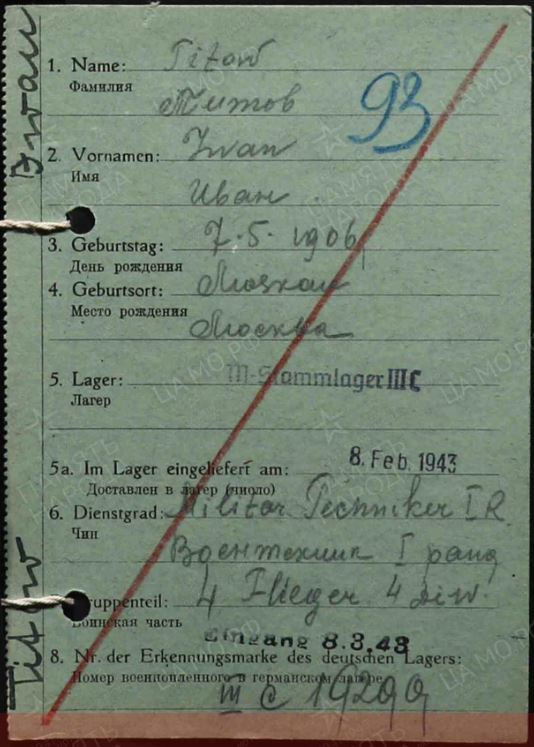 Iwan
Titow
1. Name: Titow
Фамилия
Титов
93
2. Vornamen: Iwan
Имя
Иван
3. Geburtstag: 7.5.1906
День рождения
4. Geburtsort: Moskau
Место рождения
Москва
5. Lager: M-Stammlager III C
Лагер
5a. Im Lager eingeliefert am: 8. Feb. 1943
Доставлен в лагер (число)
6. Dienstgrad: Militär Techniker I R
Чин
Воентехник I ранг
Truppenteil: 4 Flieger. 4 div.
Воинская часть
Eingang 8.3.43
8. Nr. der Erkennungsmarke des deutschen Lagers:
Номер военнопленного в германском лагере
III C 19299
ПАМЯТЬ НАРОДА
ЦА МО РФ